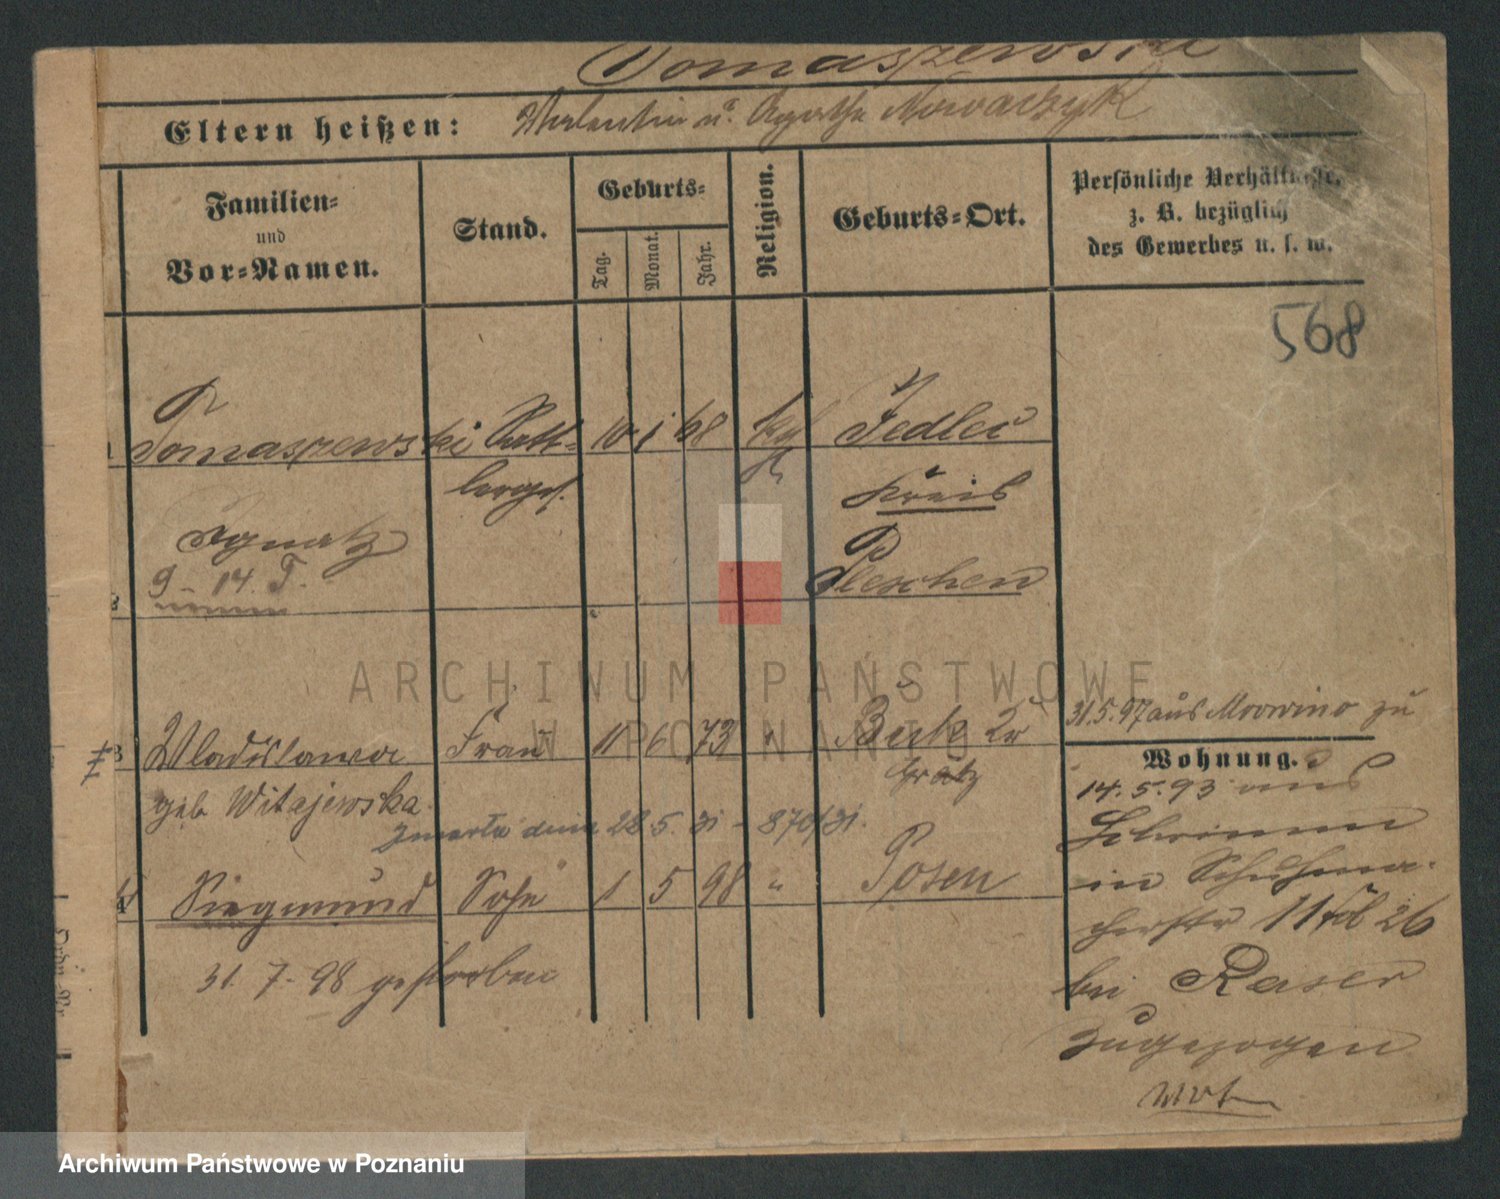 Tomaszewski
Eltern heißen: Valentin u. Agathe Nowaczyk
Familien-
und
Vor-Namen.
Stand.
Geburts-
Tag.
Monat.
Jahr.
Religion.
Geburts-Ort.
Persönliche Verhältnisse,
z. B. bezüglich
des Gewerbes u. s. w.
568
Tomaszewski 10 1 68 kath Jedlec
Kreis
Ignatz
Pleschen
9 - 14. T.
3 Wladislawa Frau 11 6 73 " Buk Kr
Grätz
geb Witajewska
Zmarła dnia 28.5.31 - 870/31.
4 Siegmund Sohn 1 5 98 " Posen
31. 7. 98 gestorben
31.5.97 aus Mrowino zu
Wohnung.
14.5.93 aus
Schrimm
in Schuhma-
cherstr 11
bei Kaiser
zugezogen
ARCHIWUM PAŃSTWOWE
W POZNANIU
Archiwum Państwowe w Poznaniu